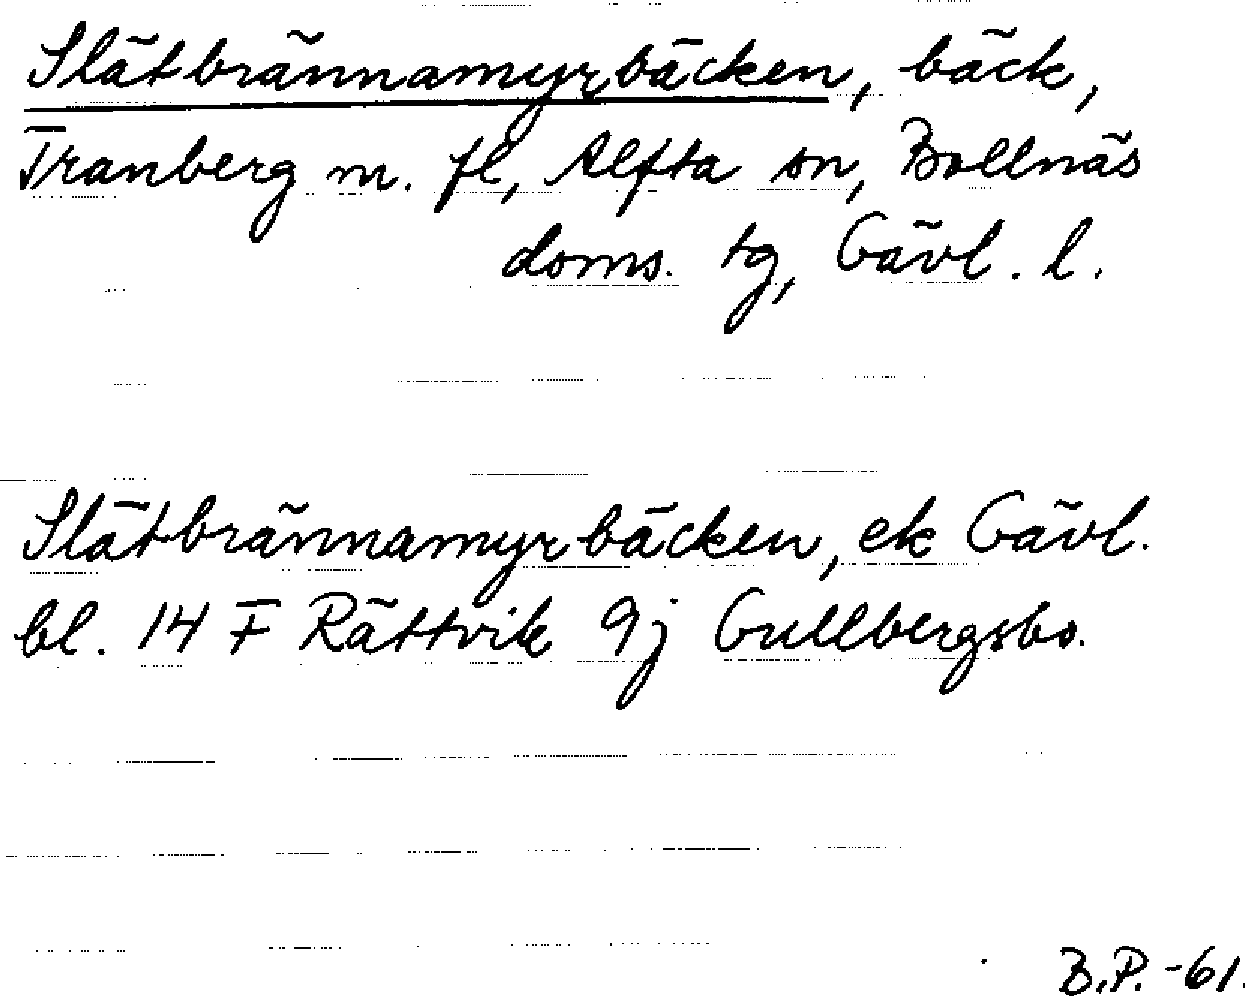 Slätbrännamyrbäcken, bäck,
Tranberg m. fl, Alfta sn, Bollnäs
doms. tg, Gävl. l.
Slätbrännamyrbäcken, ek Gävl.
bl. 14 F Rättvik 9j Gullbergsbo.
B.P. -61.